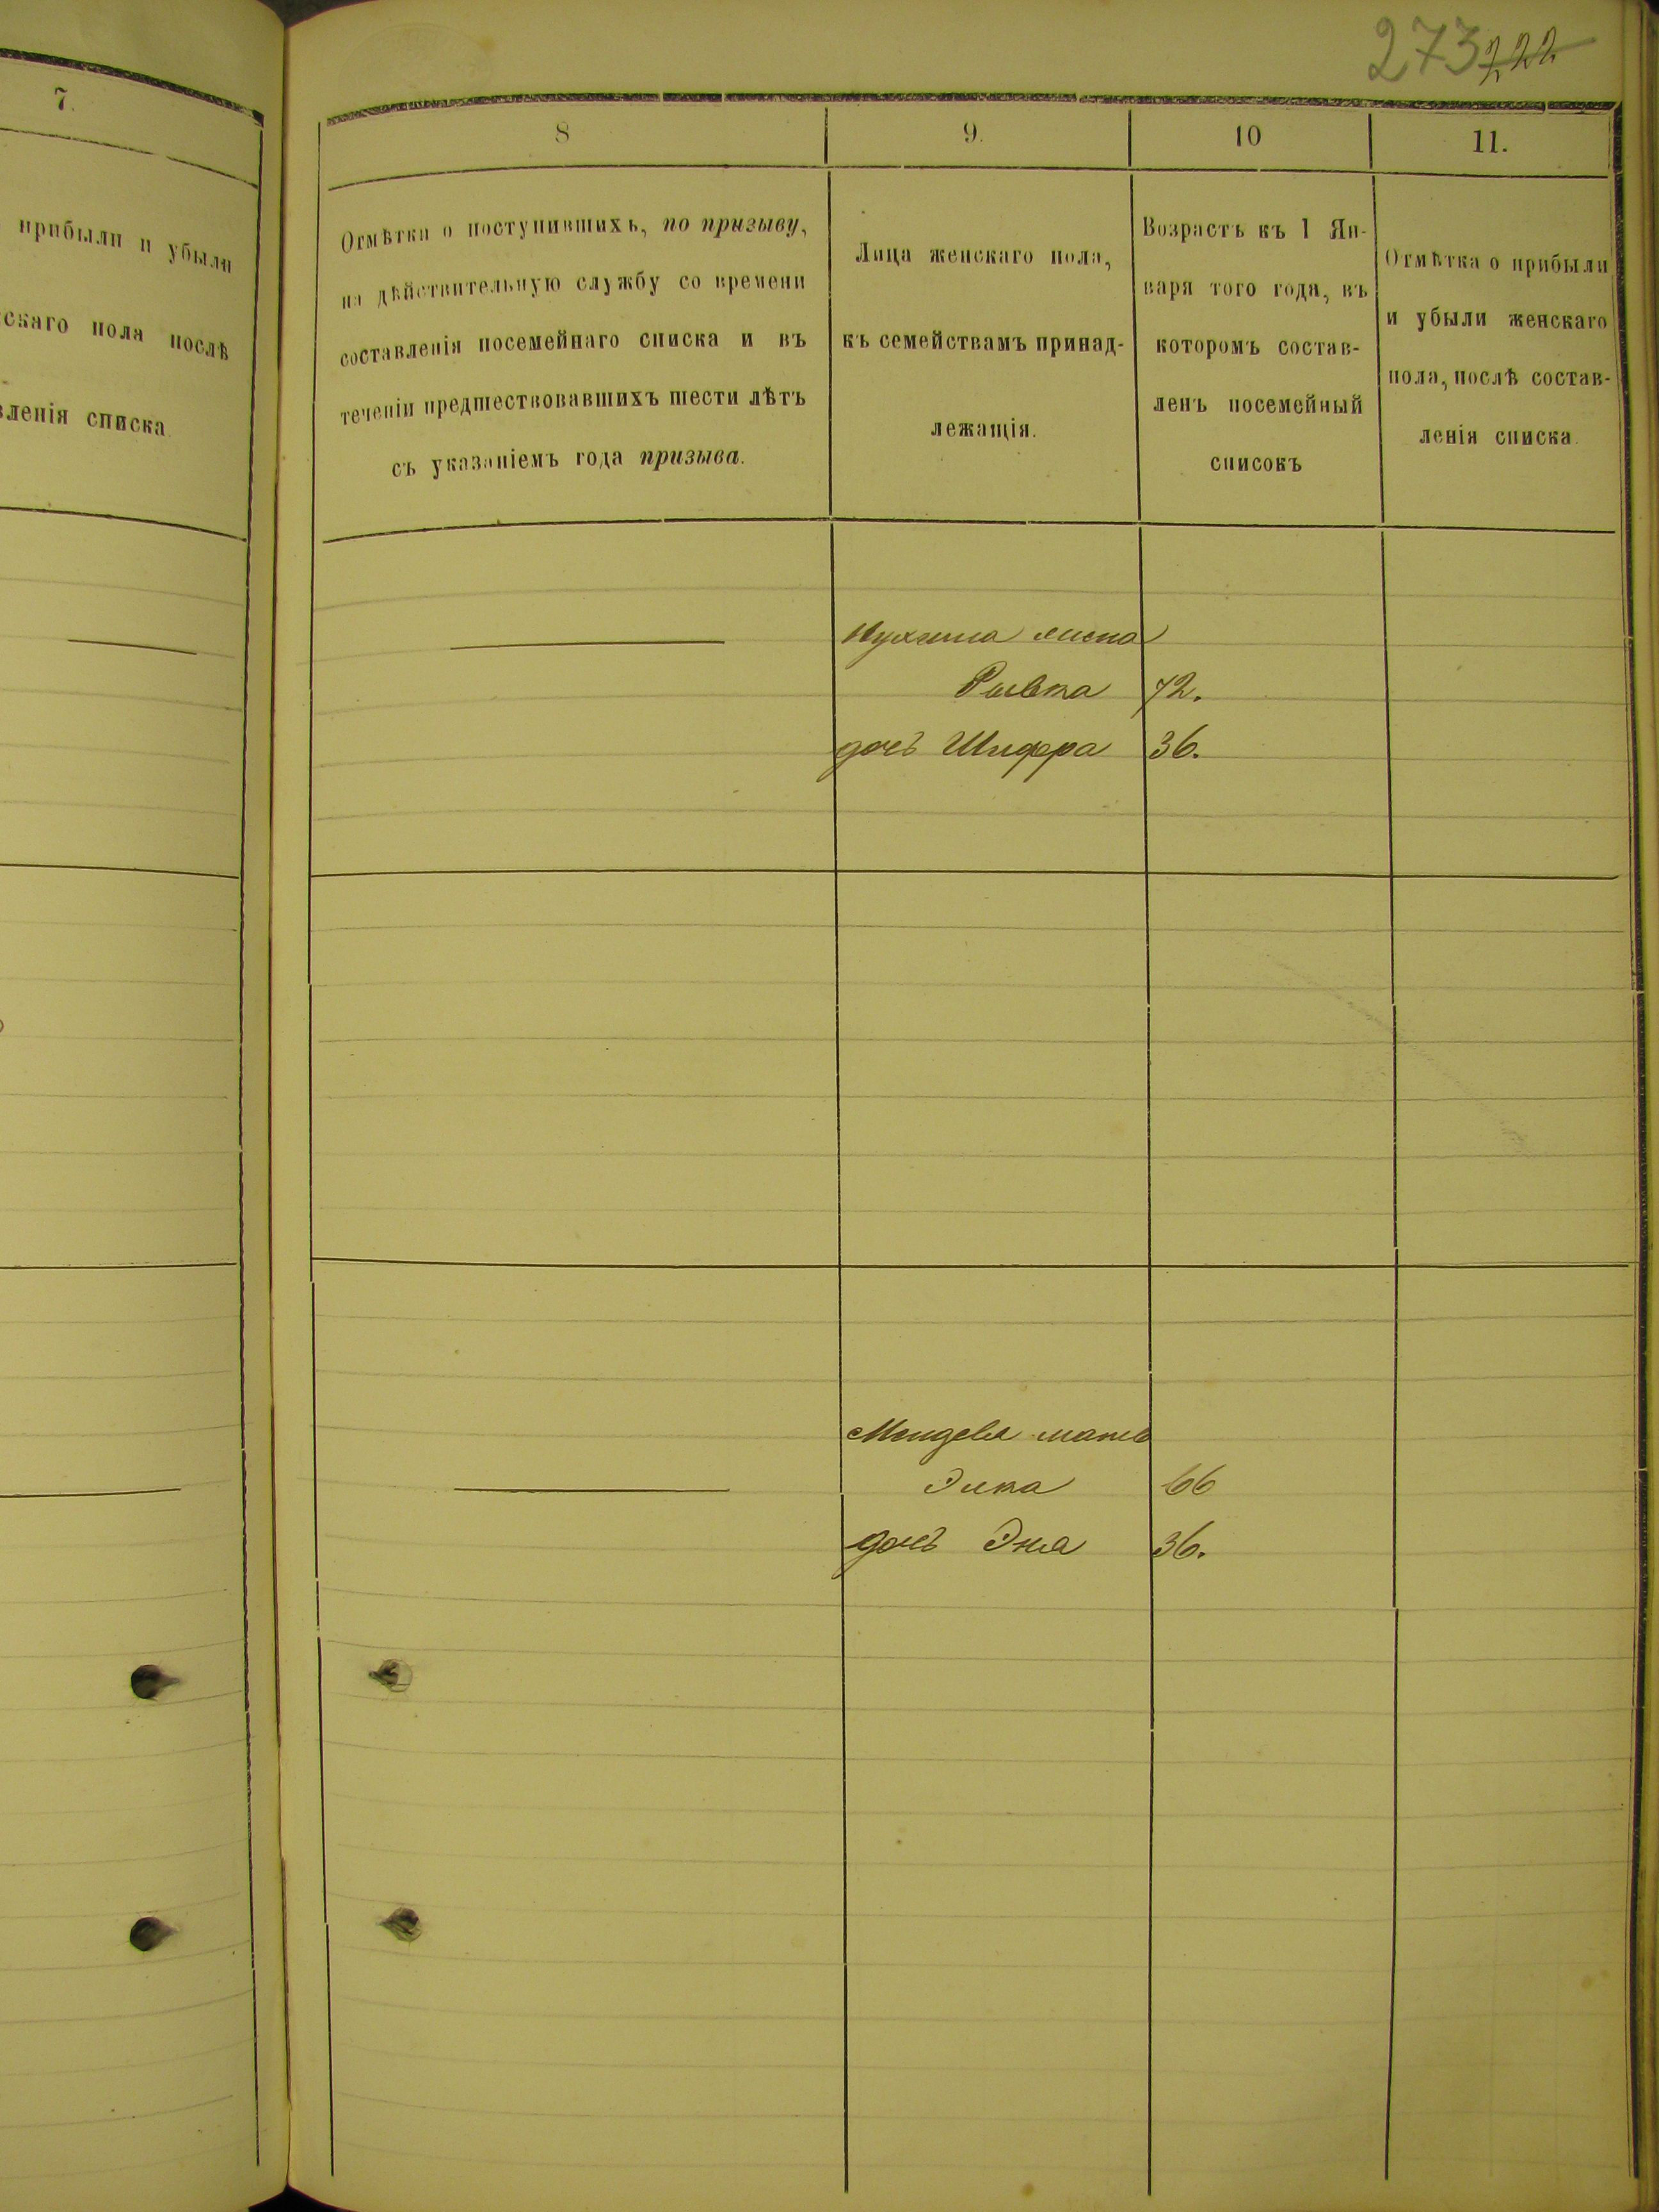 273 222
7.
прибыли и убыли
скаго пола послѣ
вленія списка.
8
Отмѣтки о поступившихъ, по призыву,
на дѣйствительную службу со времени
составленія посемейнаго списка и въ
теченіи предшествовавшихъ шести лѣтъ
съ указаніемъ года призыва.
9.
Лица женскаго пола,
къ семействамъ принад-
лежащія.
10
Возрастъ къ 1 Ян-
варя того года, въ
которомъ состав-
ленъ посемейный
списокъ
11.
Отмѣтка о прибыли
и убыли женскаго
пола, послѣ состав-
ленія списка.
Ривка 72.
дочь Шифра 36.
мать
Элка 66
дочь Эня 36.